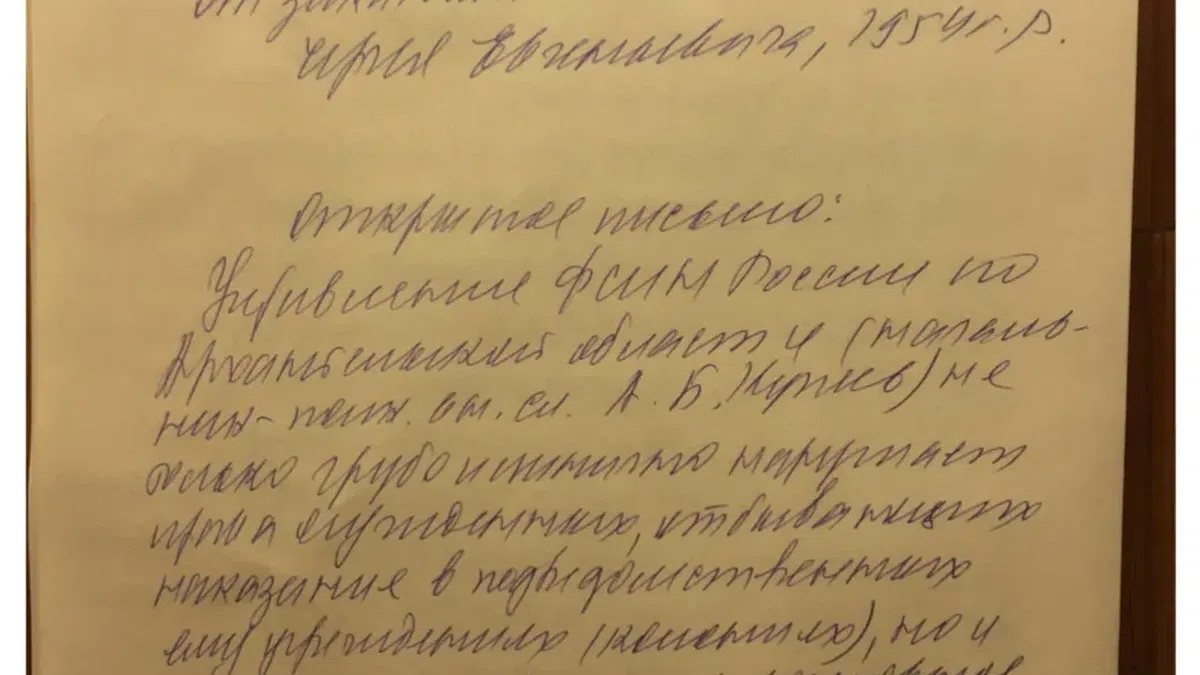 от
Юрия Евгеньевича, 1954 г.р.
Открытое письмо:
Управление ФСИН России по
Архангельской области (началь-
ник – полк. вн. сл. А. Б.) не
только грубо и цинично нарушает
права осужденных, отбывающих
наказание в подведомственных
ему учреждениях (колониях), но и